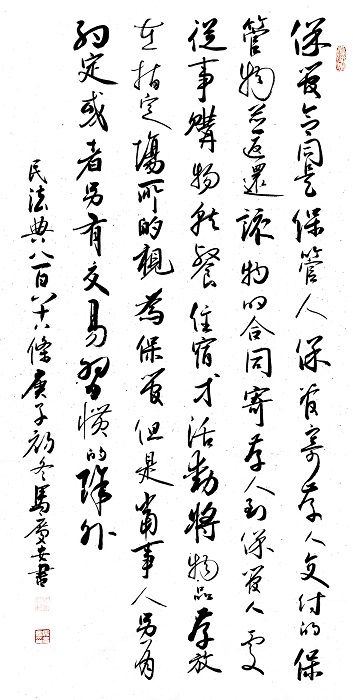 保管合同是保管人保管寄存人交付的保
管物并返還該物的合同寄存人到保管人處
從事購物就餐住宿等活動將物品存放
在指定場所的視為保管但是當事人另有
約定或者另有交易習慣的除外
民法典八百八十八條庚子初冬馬廣安書